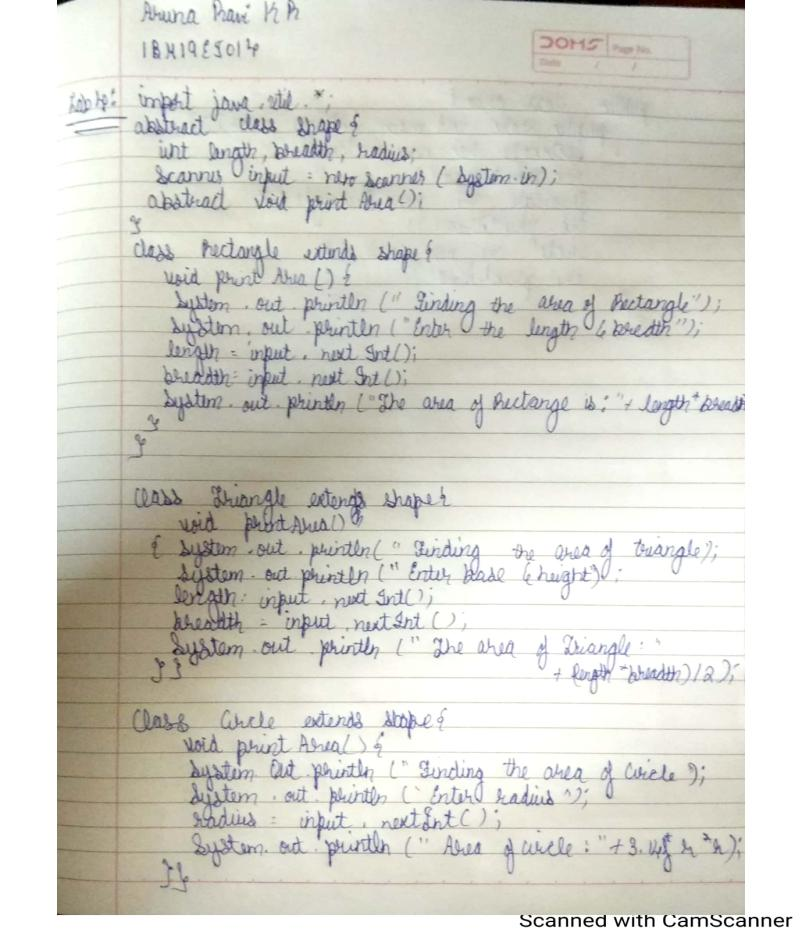 Aruna Ravi K R
1BM19CS014
DOMS Page No.
Date / /
Lab 4: import java.util.*;
abstract class shape {
int length, breadth, radius;
Scanner input = new scanner (System.in);
abstract void print Area();
}
class Rectangle extends shape {
void print Area () {
System.out.println (" Finding the area of Rectangle");
System.out.println ("Enter the length & breadth");
length = input.next Int();
breadth = input.next Int();
System.out.println ("The area of Rectange is: "+ length*breadth
}
}
Class Triangle extends shape {
void printArea()
{ System.out.println(" Finding the area of triangle);
System.out println (" Enter base & height);
length = input.next Int();
breadth = input.nextInt();
System.out.println (" The area of Triangle: "
+ length *breadth)/2);
} }
Class Circle extends shape {
void print Area() {
System Out.println (" Finding the area of Circle ");
System.out.println (" Enter radius ");
radius = input.nextInt();
System.out.println (" Area of circle : "+3.14* r *r);
}}
Scanned with CamScanner